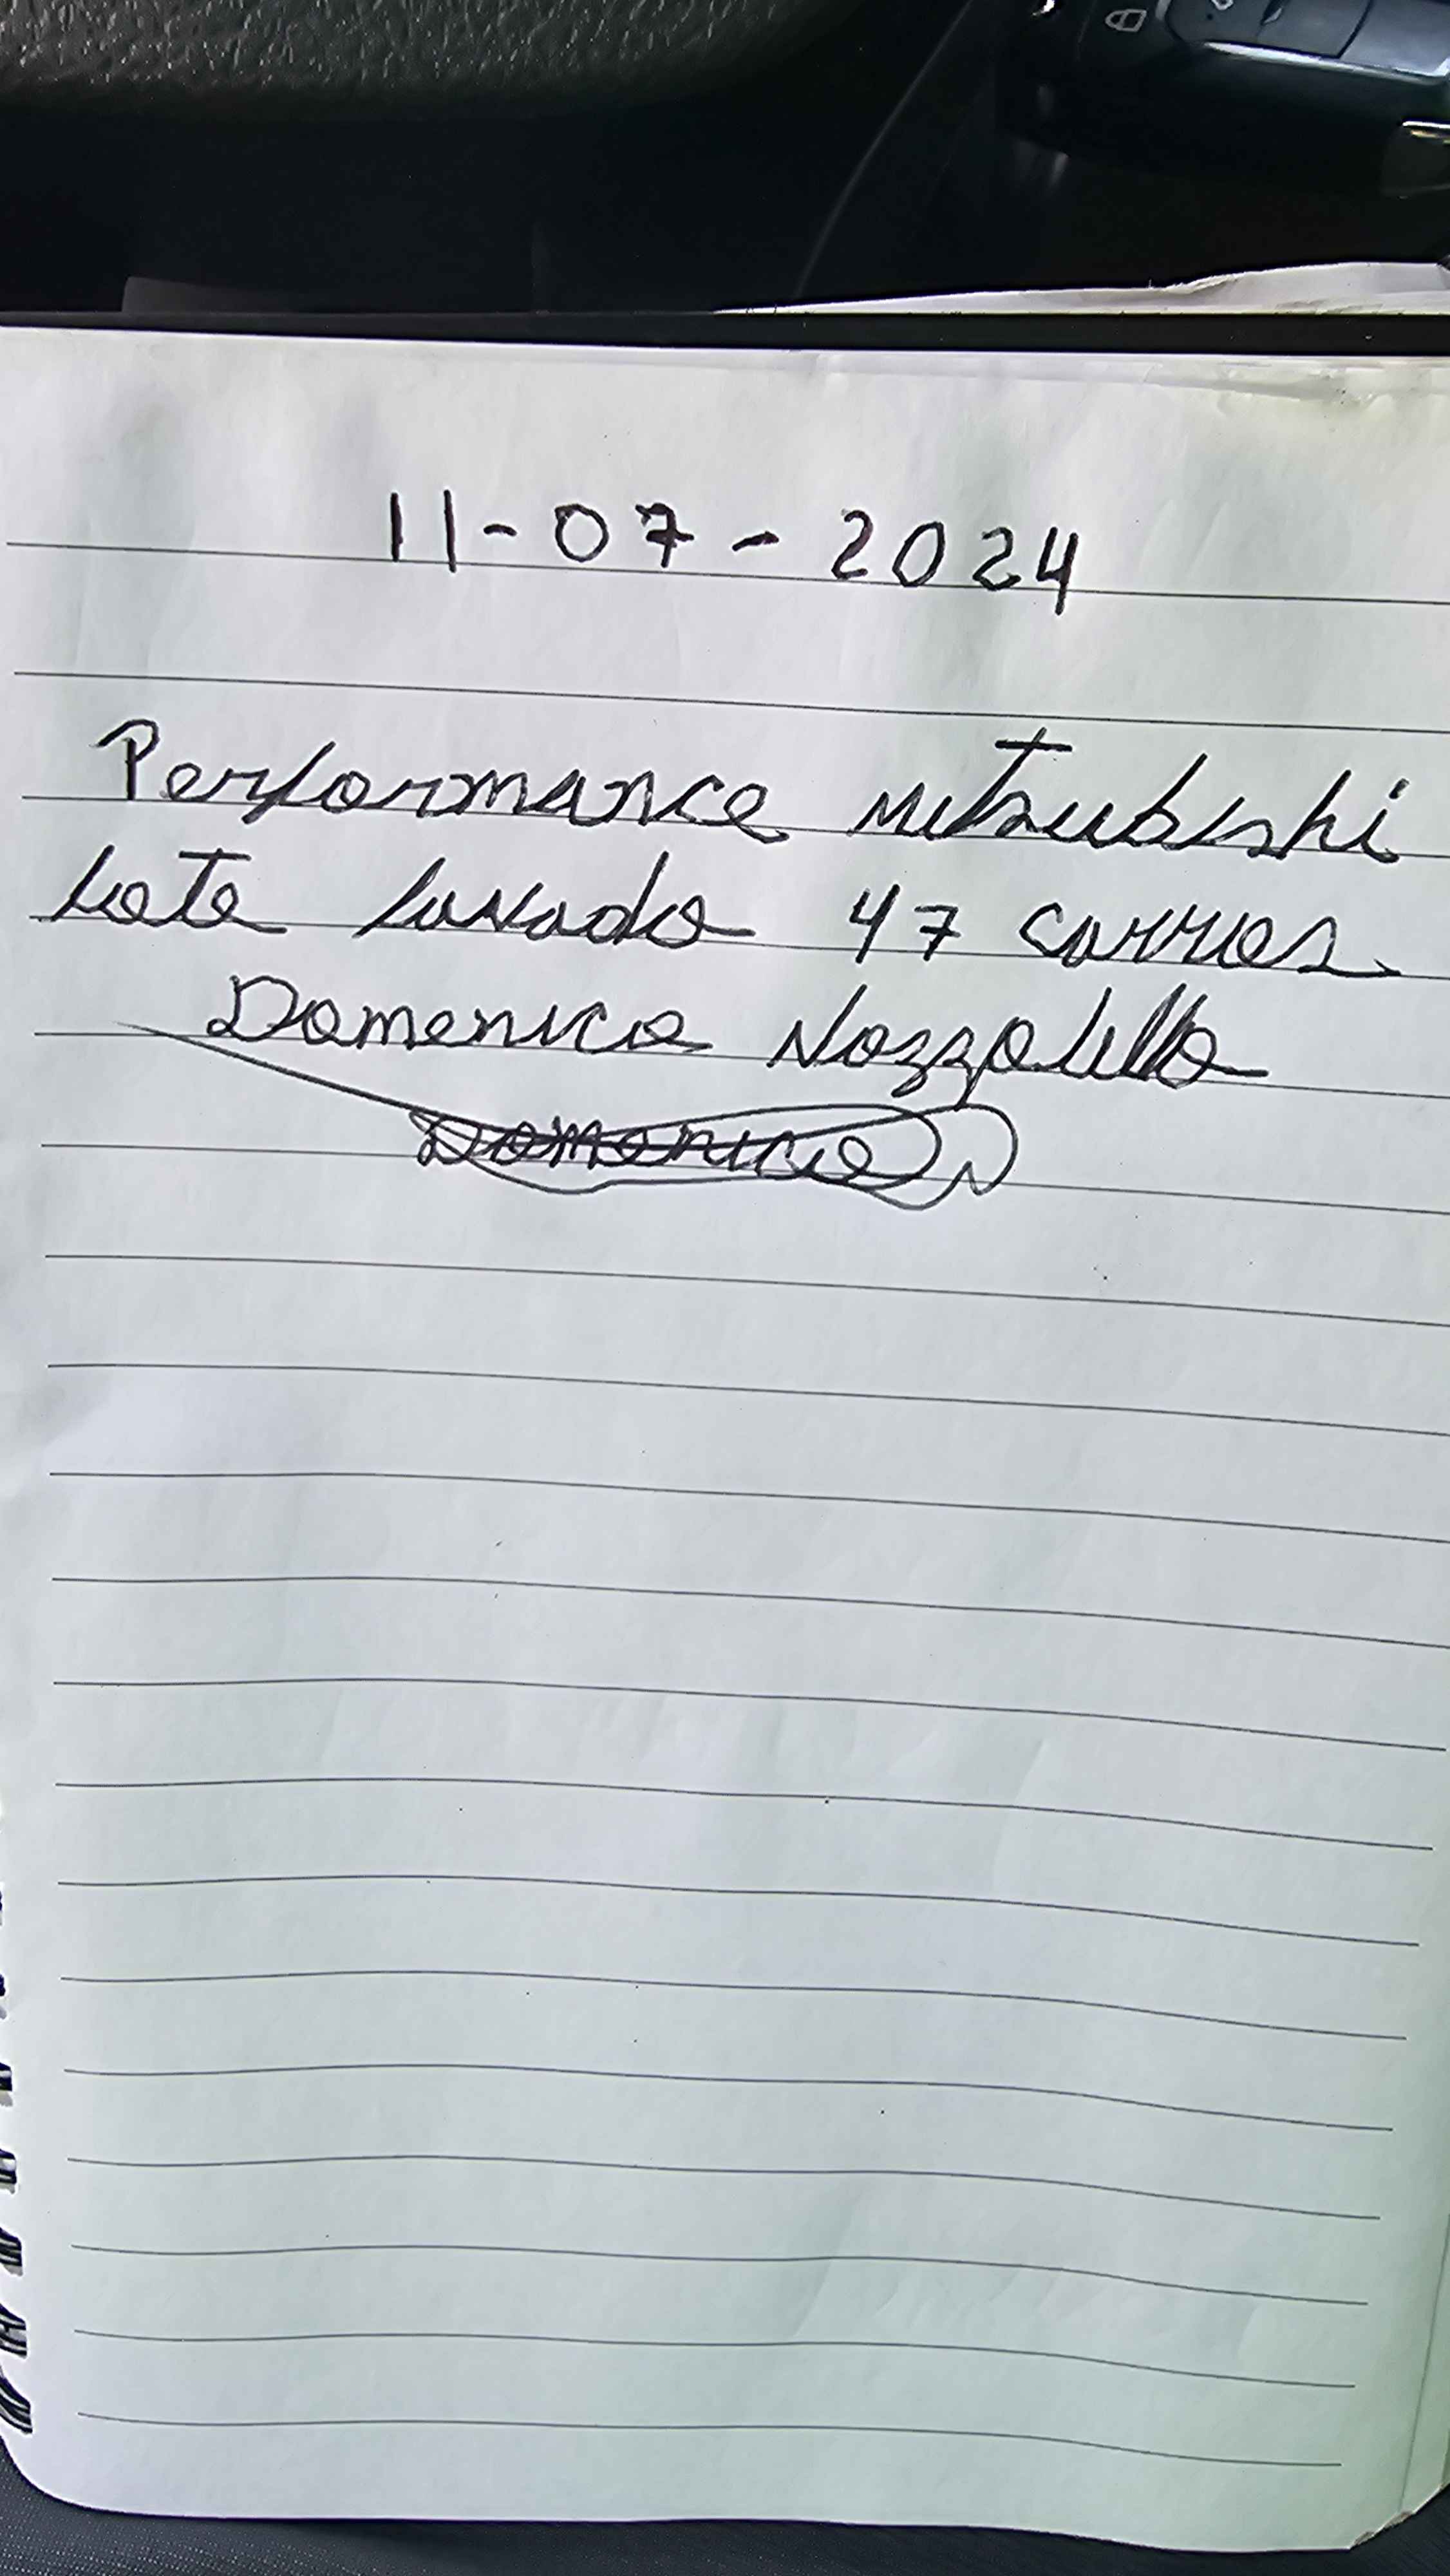 11-07-2024
Performance mitsubishi
Lote lavado 47 carros.
Domenico Nozzolillo
Domenico N